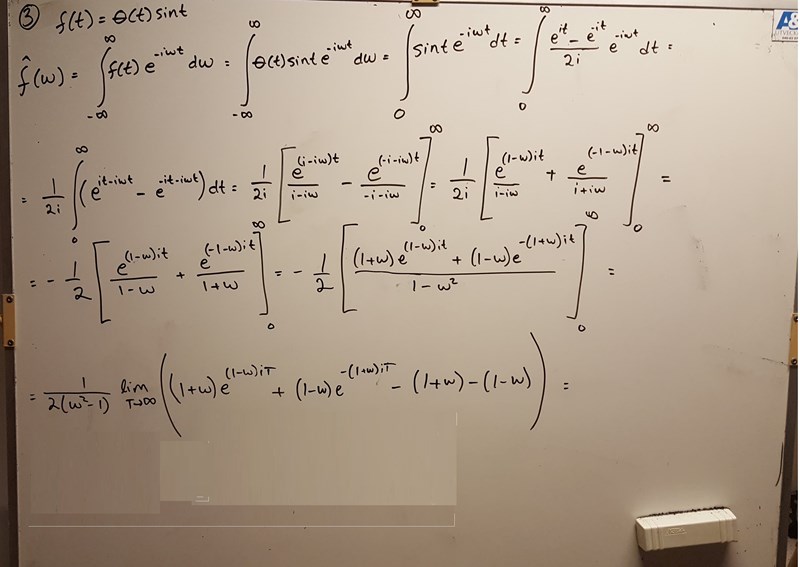 ③ f(t) = θ(t) sint
f̂(ω) = ∫_{-∞}^{∞} f(t) e^{-iωt} dω = ∫_{-∞}^{∞} θ(t) sint e^{-iωt} dω = ∫_0^∞ sint e^{-iωt} dt = ∫_0^∞ \frac{e^{it} - e^{-it}}{2i} e^{-iωt} dt =
= \frac{1}{2i} ∫_0^∞ (e^{it-iωt} - e^{-it-iωt}) dt = \frac{1}{2i} [\frac{e^{(i-iω)t}}{i-iω} - \frac{e^{(-i-iω)t}}{-i-iω}]_0^∞ = \frac{1}{2i} [\frac{e^{(1-ω)it}}{i-iω} + \frac{e^{(-1-ω)it}}{i+iω}]_0^∞ =
= - \frac{1}{2} [\frac{e^{(1-ω)it}}{1-ω} + \frac{e^{(-1-ω)it}}{1+ω}]_0^∞ = - \frac{1}{2} [\frac{(1+ω) e^{(1-ω)it} + (1-ω) e^{-(1+ω)it}}{1-ω²}]_0^∞ =
= \frac{1}{2(ω²-1)} lim_{T→∞} ((1+ω) e^{(1-ω)iT} + (1-ω) e^{-(1+ω)iT} - (1+ω) - (1-ω)) =